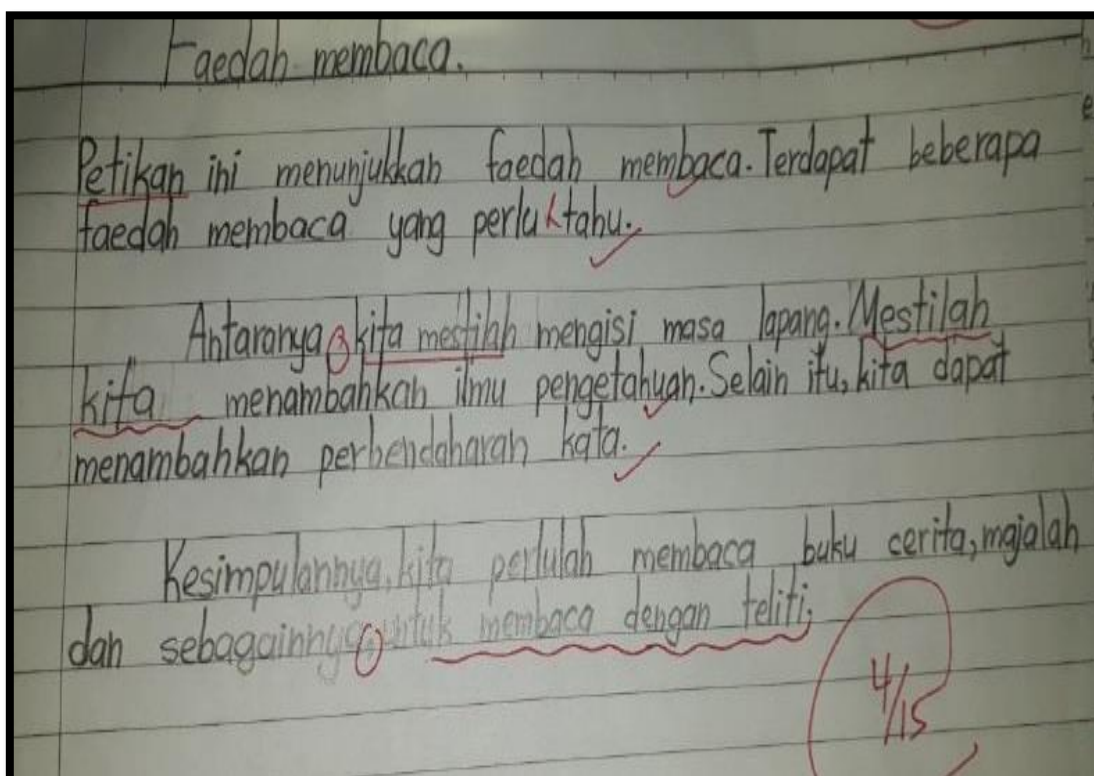 Faedah membaca.
Petikan ini menunjukkan faedah membaca. Terdapat beberapa
faedah membaca yang perlu tahu.
Antaranya, kita mestilah mengisi masa lapang. Mestilah
kita menambahkan ilmu pengetahuan. Selain itu, kita dapat
menambahkan perbendaharan kata.
Kesimpulannya, kita perlulah membaca buku cerita, majalah
dan sebagainnya, untuk membaca dengan teliti.
4/15